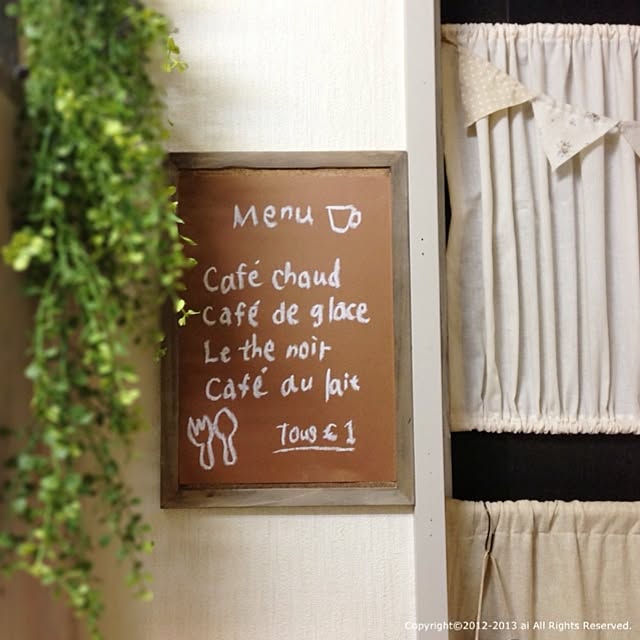 Menu
Café chaud
Café de glace
Le the noir
Café au lait
Tous € 1
Copyright©2012-2013 ai All Rights Reserved.